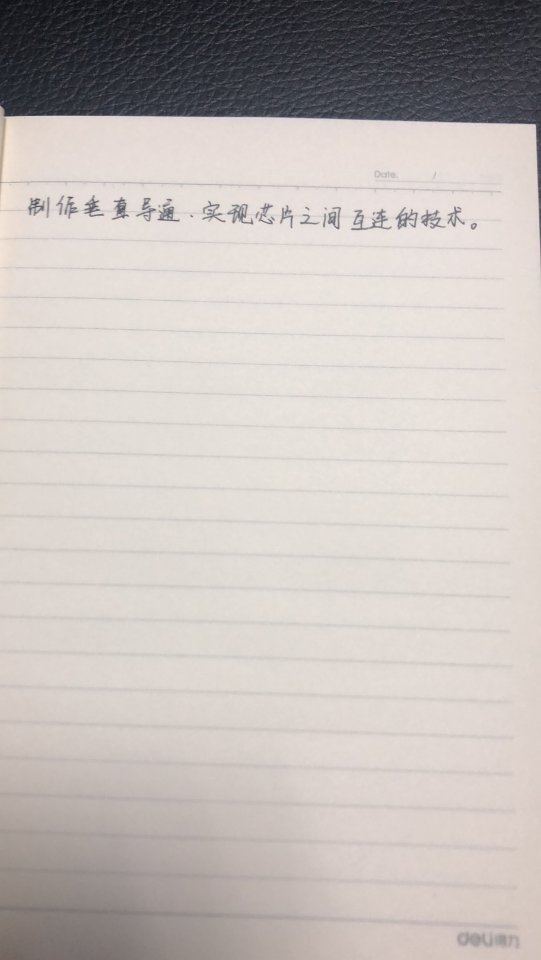 Date. /
制作垂直导通、实现芯片之间互连的技术。
deli得力